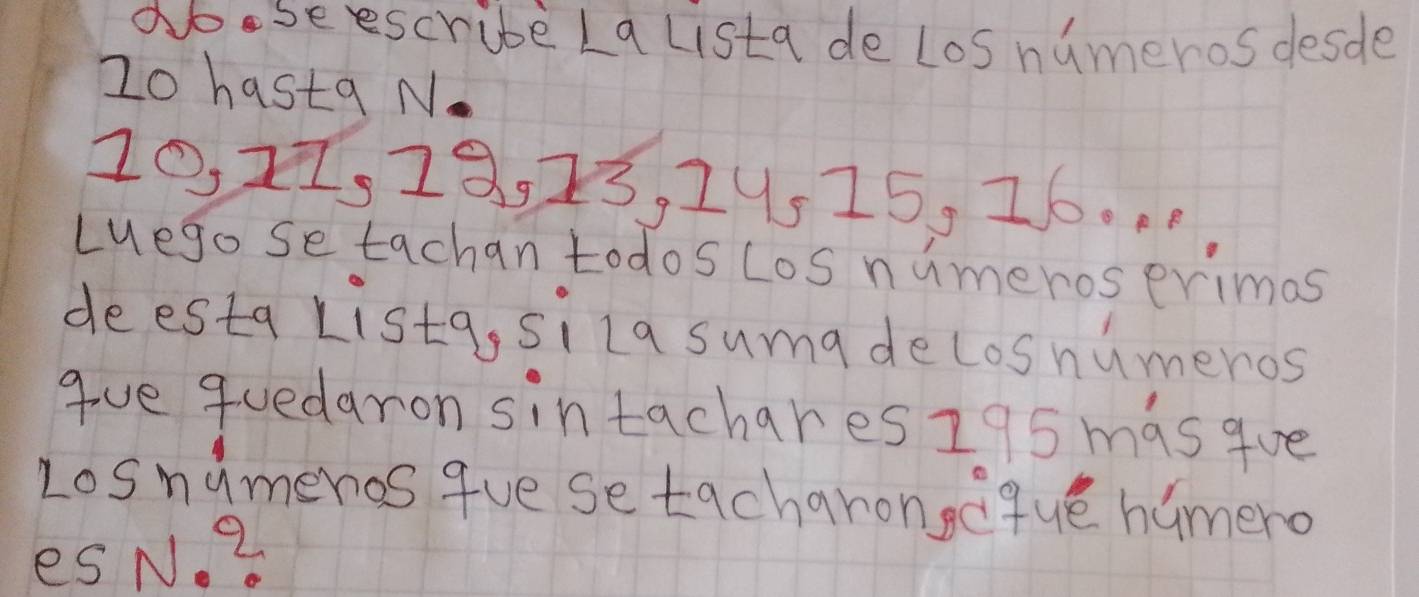 26. Se escribe La Lista de Los números desde
10 hasta N.
10, 11, 12, 13, 14, 15, 16....
Luego se tachan todos Los números primos
de esta Lista, si la suma de Los números
que quedaron sin tachar es 195 más que
Los números que se tacharon, ¿qué número
es N.?